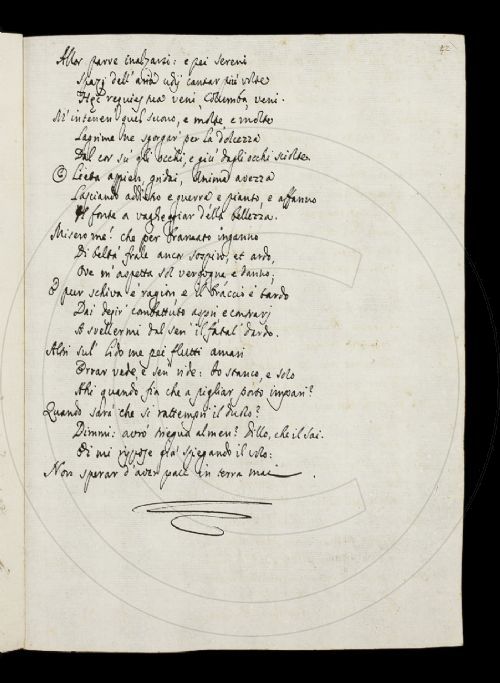 42
Allor parve inalzarsi: e pei sereni
Spazj dell'aria udij cantar più volte
Hęc requies tua veni, Columba, veni.
M'intenerì quel suono, e molte e molte
Lagrime me sgorgar' per la dolcezza
Dal cor su' gli occhi, e giù dagli occhi sciolte.
O Lieta appien, gridai, Anima avezza
Lasciando addietro e guerra e pianto, e affanno
Il fonte a vagheggiar della bellezza.
Misero me! che per bramato inganno
Di beltà frale ancor sospiro, et ardo,
Ove m'aspetta sol vergogna e danno;
E pur schiva è ragion e il braccio è tardo
Dai desir' combattuto aspri e contrarj
A svellermi dal sen' il fatal dardo.
Altri sul' lido me pei flutti amari
Errar vede e sen' ride: Io stanco, e solo
Ahi quando fia che a pigliar porto impari?
Quando sarà che si rattempri il duolo?
Dimmi: avrò tregua almen? Dillo, che il sai.
Ei mi rispose già spiegando il volo:
Non sperar d'aver pace in terra mai.